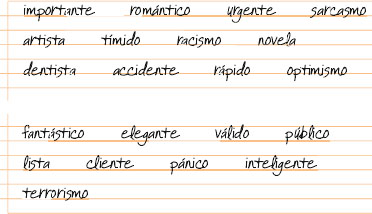 importante romántico urgente sarcasmo
artista tímido racismo novela
dentista accidente rápido optimismo
fantástico elegante válido público
lista cliente pánico inteligente
terrorismo